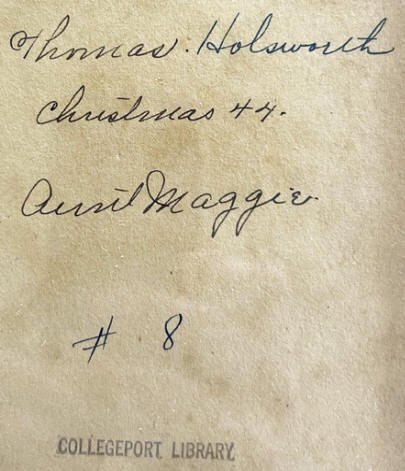 Thomas. Holsworth
Christmas 44.
Aunt Maggie.
# 8
COLLEGEPORT LIBRARY